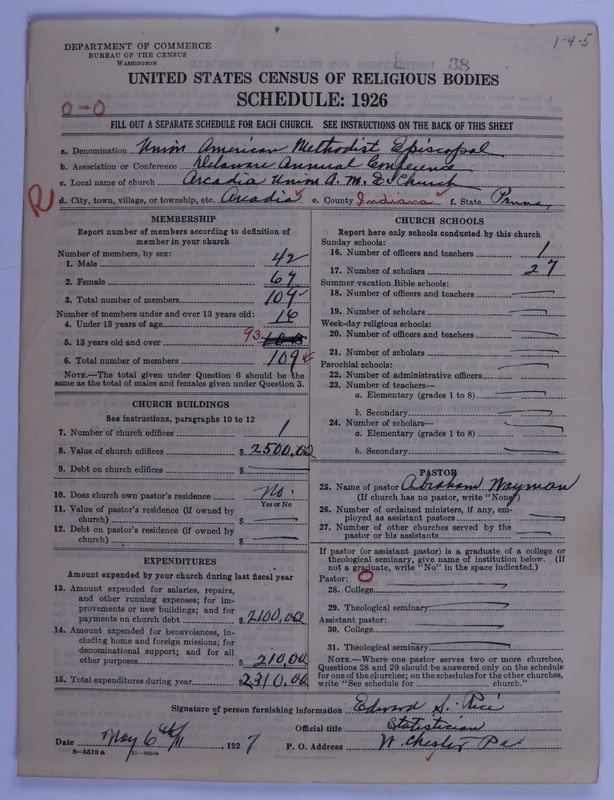 1-4-5
38
DEPARTMENT OF COMMERCE
BUREAU OF THE CENSUS
WASHINGTON
UNITED STATES CENSUS OF RELIGIOUS BODIES
SCHEDULE: 1926
0-0
FILL OUT A SEPARATE SCHEDULE FOR EACH CHURCH. SEE INSTRUCTIONS ON THE BACK OF THIS SHEET
a. Denomination Union American Methodist Episcopal
b. Association or Conference Delaware Annual Conference
c. Local name of church Arcadia Union A. M. E. Church
R
d. City, town, village, or township, etc. Arcadia e. County Indiana f. State Penna
MEMBERSHIP
Report number of members according to definition of member in your church
Number of members, by sex:
1. Male 42
2. Female 67
3. Total number of members 109
Number of members under and over 13 years old:
4. Under 13 years of age 16
5. 13 years old and over 93
6. Total number of members 109
NOTE.—The total given under Question 6 should be the same as the total of males and females given under Question 3.
CHURCH BUILDINGS
See instructions, paragraphs 10 to 12
7. Number of church edifices 1
8. Value of church edifices $2500.00
9. Debt on church edifices $
10. Does church own pastor's residence No.
Yes or No
11. Value of pastor's residence (if owned by church) $
12. Debt on pastor's residence (if owned by church) $
EXPENDITURES
Amount expended by your church during last fiscal year
13. Amount expended for salaries, repairs, and other running expenses; for improvements or new buildings; and for payments on church debt $2100.00
14. Amount expended for benevolences, including home and foreign missions; for denominational support; and for all other purposes $210.00
15. Total expenditures during year $2310.00
CHURCH SCHOOLS
Report here only schools conducted by this church
Sunday schools:
16. Number of officers and teachers 1
17. Number of scholars 27
Summer vacation Bible schools:
18. Number of officers and teachers
19. Number of scholars
Week-day religious schools:
20. Number of officers and teachers
21. Number of scholars
Parochial schools:
22. Number of administrative officers
23. Number of teachers—
a. Elementary (grades 1 to 8)
b. Secondary
24. Number of scholars—
a. Elementary (grades 1 to 8)
b. Secondary
PASTOR
25. Name of pastor Abraham Wayman
(If church has no pastor, write "None")
26. Number of ordained ministers, if any, employed as assistant pastors
27. Number of other churches served by the pastor or his assistants
If pastor (or assistant pastor) is a graduate of a college or theological seminary, give name of institution below. (If not a graduate, write "No" in the space indicated.)
Pastor: 0
28. College
29. Theological seminary
Assistant pastor:
30. College
31. Theological seminary
NOTE.—Where one pastor serves two or more churches, Questions 28 and 29 should be answered only on the schedule for one of the churches; on the schedules for the other churches, write "See schedule for church."
Signature of person furnishing information Edward S. Rice
Official title Statistician
Date May 6th, 1927 P. O. Address W. Chester Pa
8—5518 a